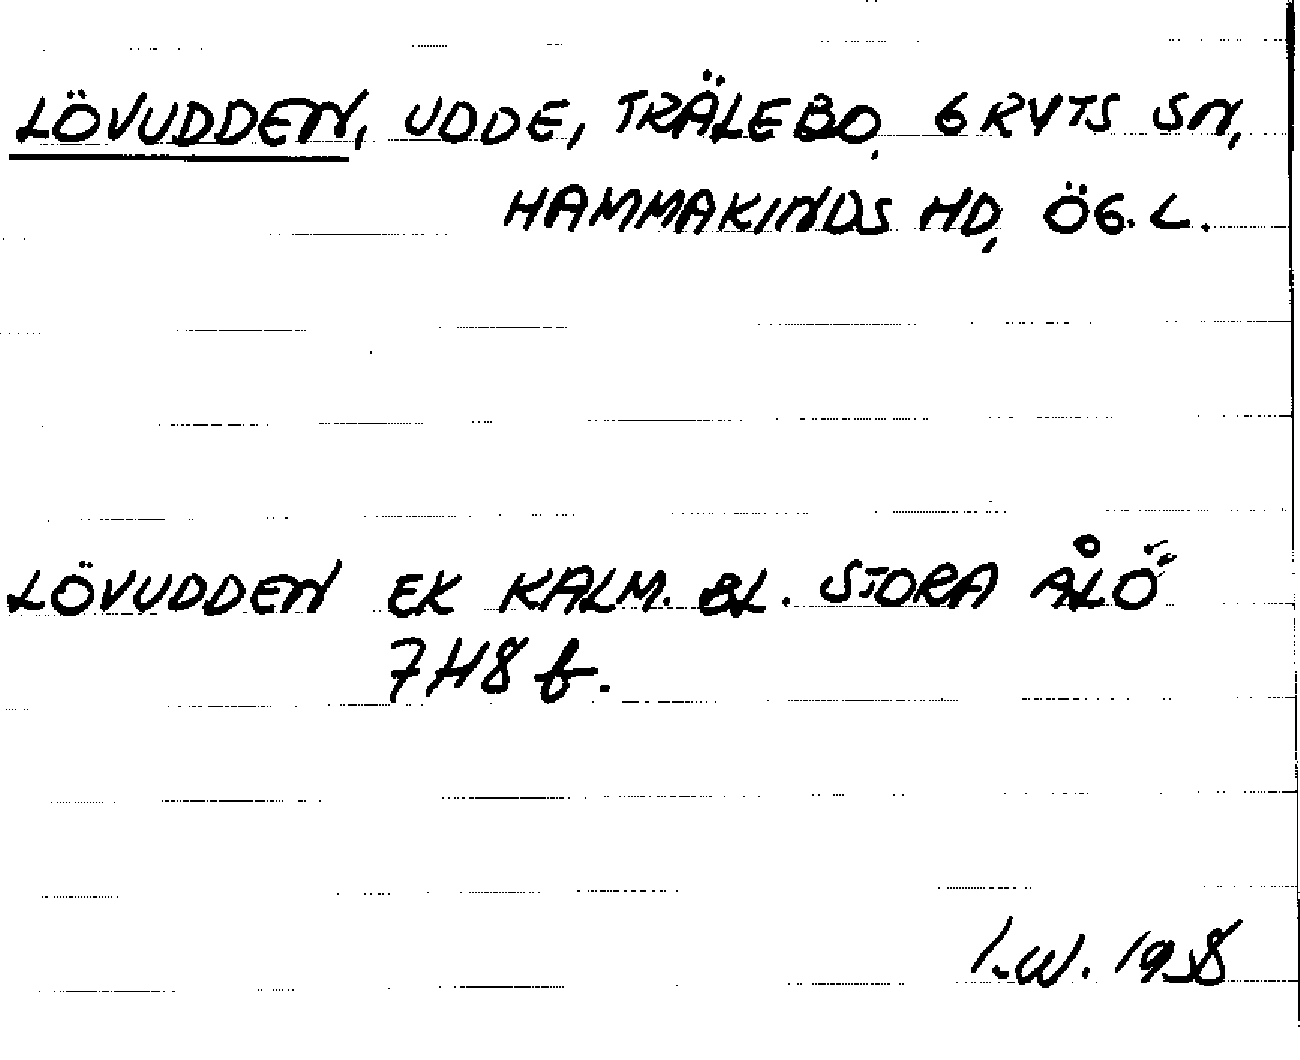 LÖVUDDEN, UDDE, TRÄLEBO, GRYTS SN,
HAMMAKINDS HD, ÖG. L.
LÖVUDDEN EK KALM. BL. STORA ÅLÖ
7H8 f.
I.W. 1958